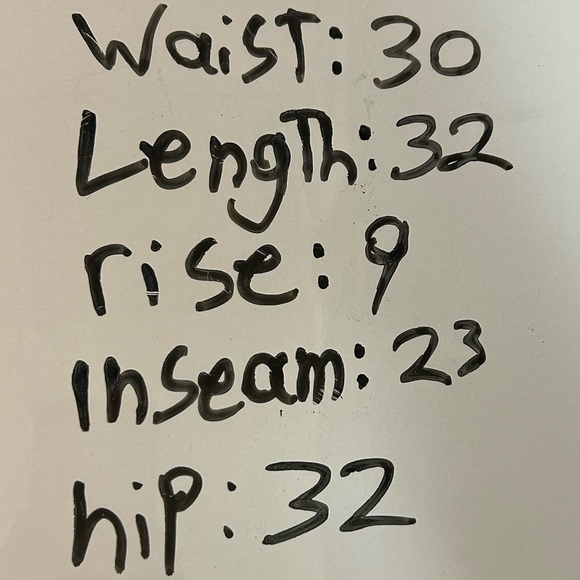 Waist: 30
Length: 32
rise: 9
Inseam: 23
hip: 32